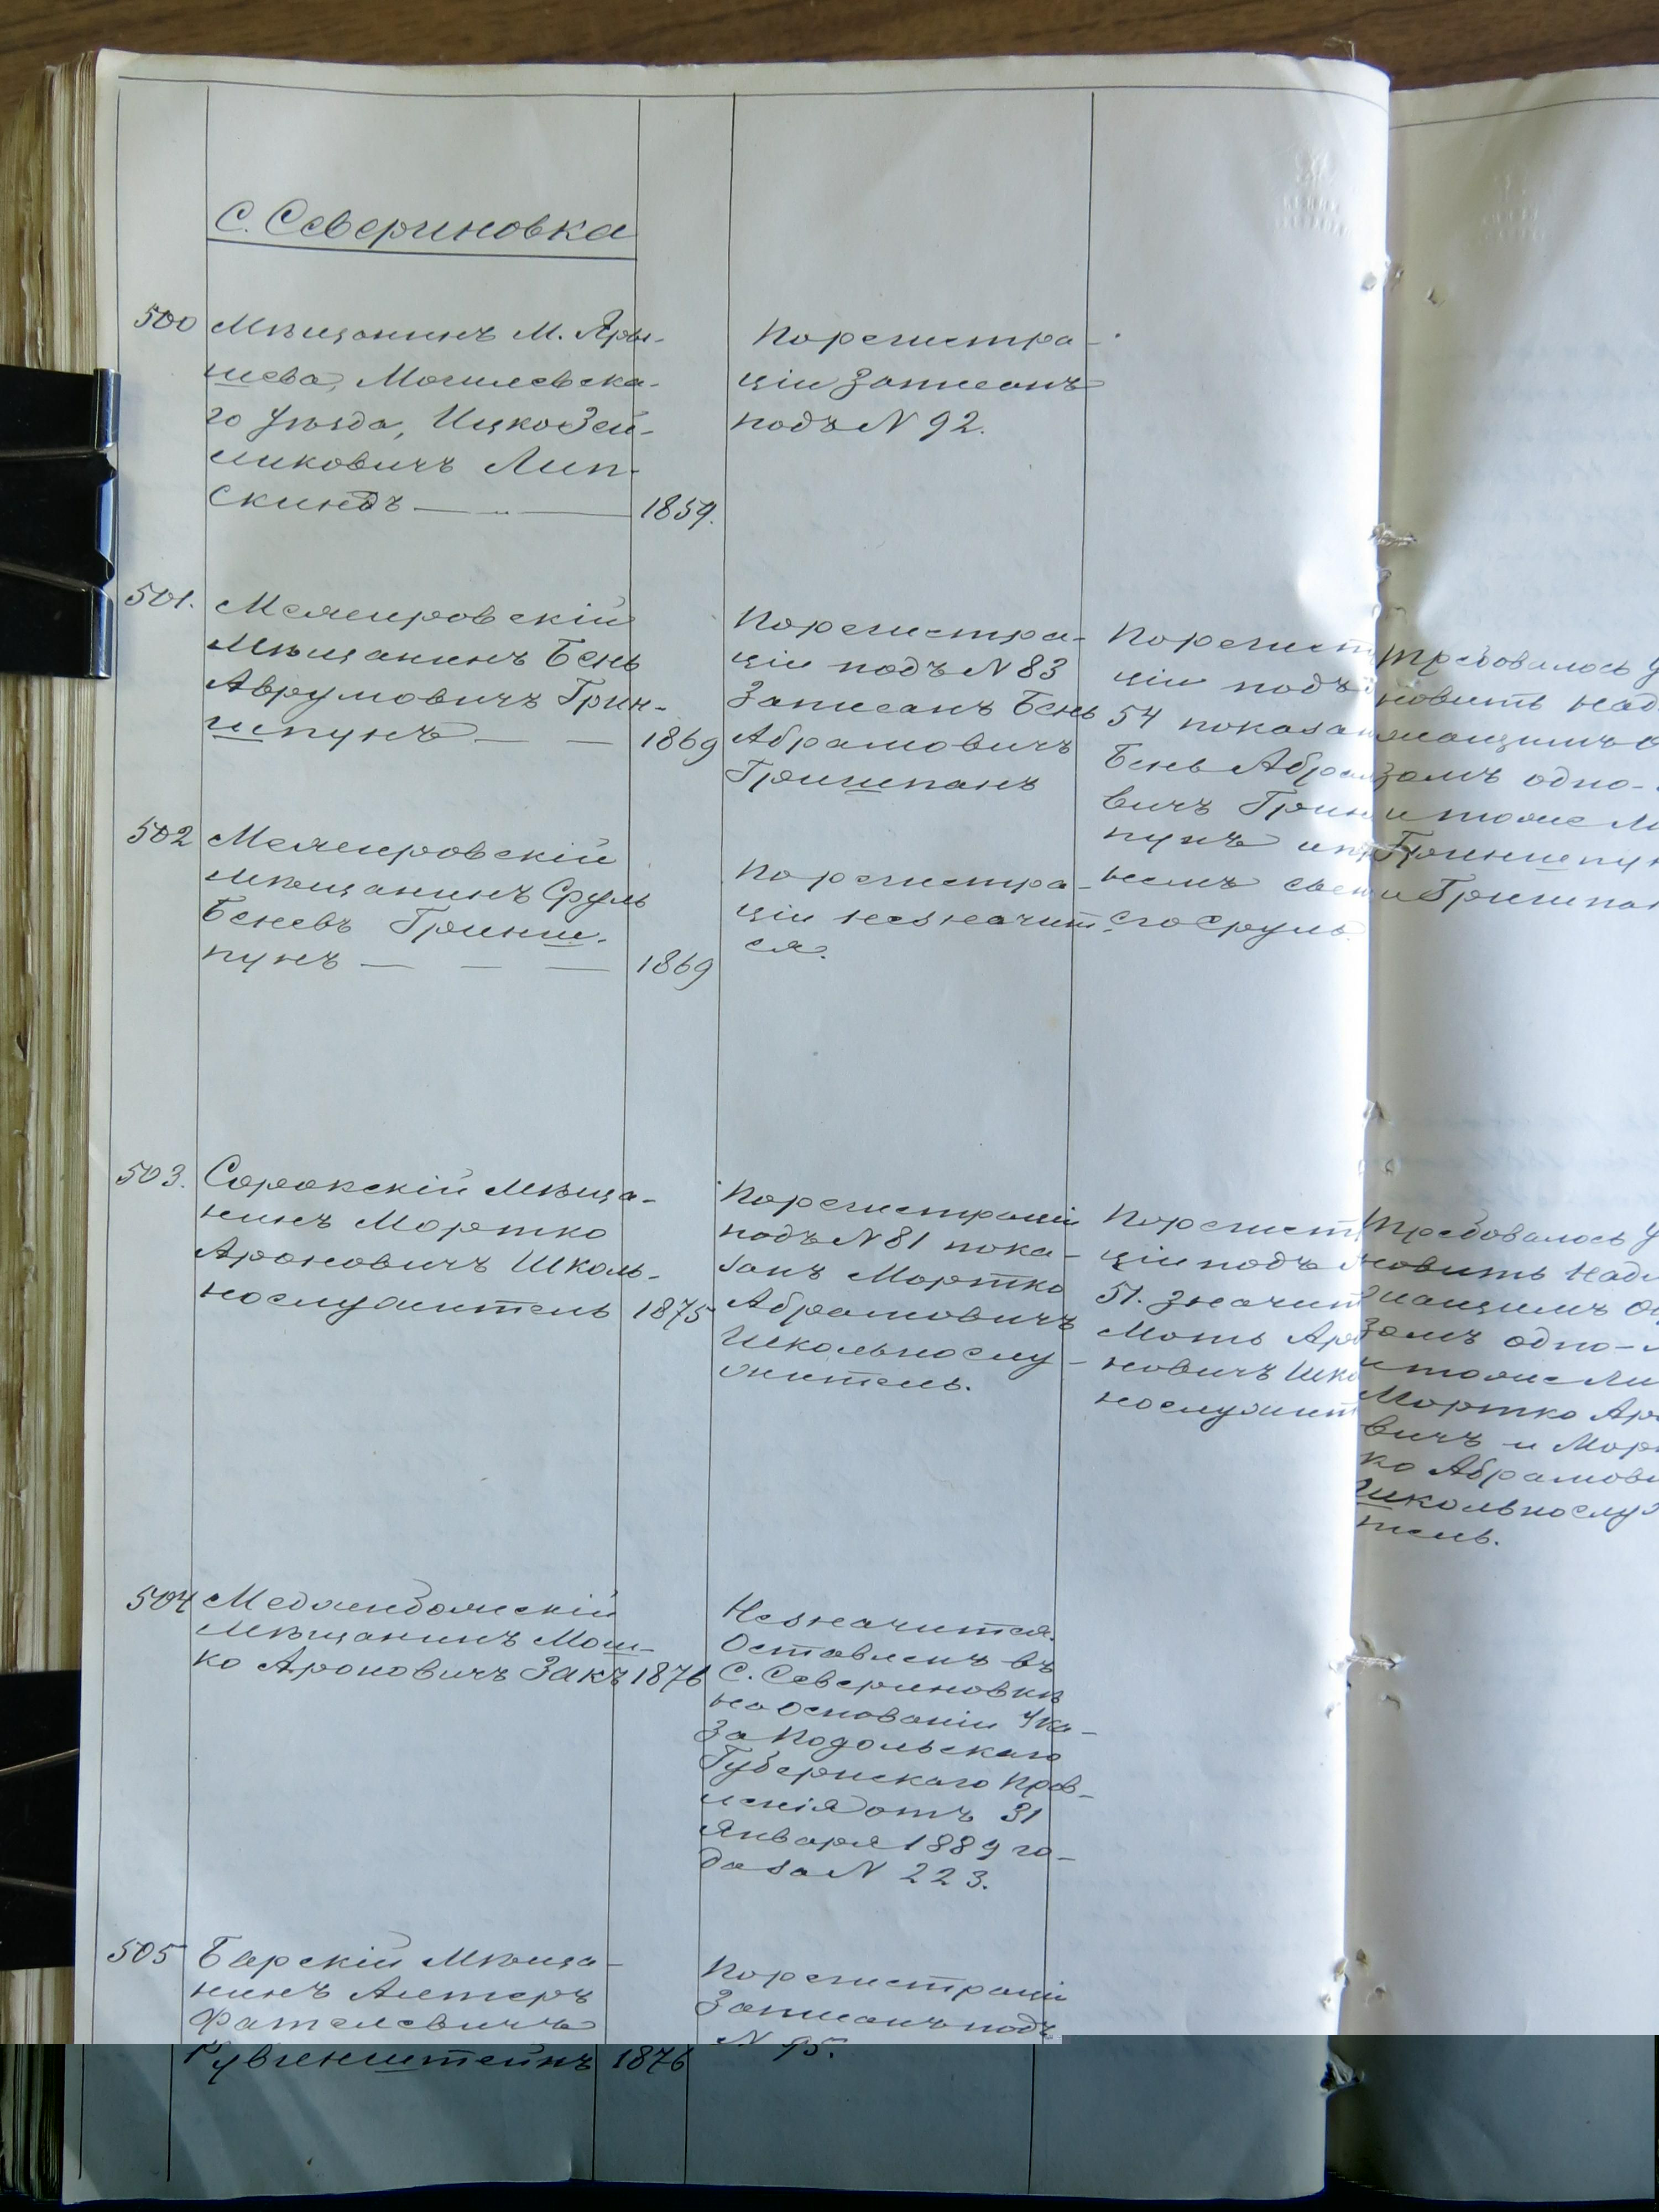 С. Севериновка
500
Мѣщанинъ М. Яры-
шева, Могилевска-
го уѣзда, Ицко Зей-
ликовичъ Лип-
скиндъ 1859.
По регистра-
ціи записанъ
подъ N 92.
501.
Межировскій
Мѣщанинъ Бень
Аврумовичъ Грин-
шпунъ 1869
По регистра-
ціи подъ N 83
записанъ Бень
Абрамовичъ
Гришпанъ
По регист
ціи подъ
54 показан
Бень Абрам
вичъ Грин
пунъ и при
немъ сын
его Сруль
Требовалось у
новить над
лежащимъ о
зомъ одно-
и тоже ли
Гриншпун
и Гришпан
502
Межировскій
мѣщанинъ Сруль
Беневъ Гринш-
пунъ 1869
По регистра-
ціи незначит-
ся.
503.
Сорокскій Мѣща-
нинъ Мортко
Ароновичъ Школь-
нослужитель 1875
По регистраціи
подъ N 81 пока-
занъ Мортко
Абрамовичъ
Школьнослу-
житель.
По регист
ціи подъ
51. значит
Моть Аро
новичъ Шко
нослужит
Требовалось у
новить надл
жащимъ об
зомъ одно-
и тоже ли
Мортко Аро
вичъ и Морт
ко Абрамови
Школьнослуж
тель.
504
Меджибожскій
Мѣщанинъ Мош-
ко Ароновичъ Закъ 1876
Незначится.
Оставленъ въ
С. Севериновкѣ
на основаніи Ука-
за Подольскаго
Губернскаго Прав-
ленія отъ 31
Января 1889 го-
да за N 223.
505
Барскій Мѣща-
нинъ Алтеръ
Фателевичъ
Рувгенштейнъ 1876
По регистраціи
записанъ подъ
N 95.